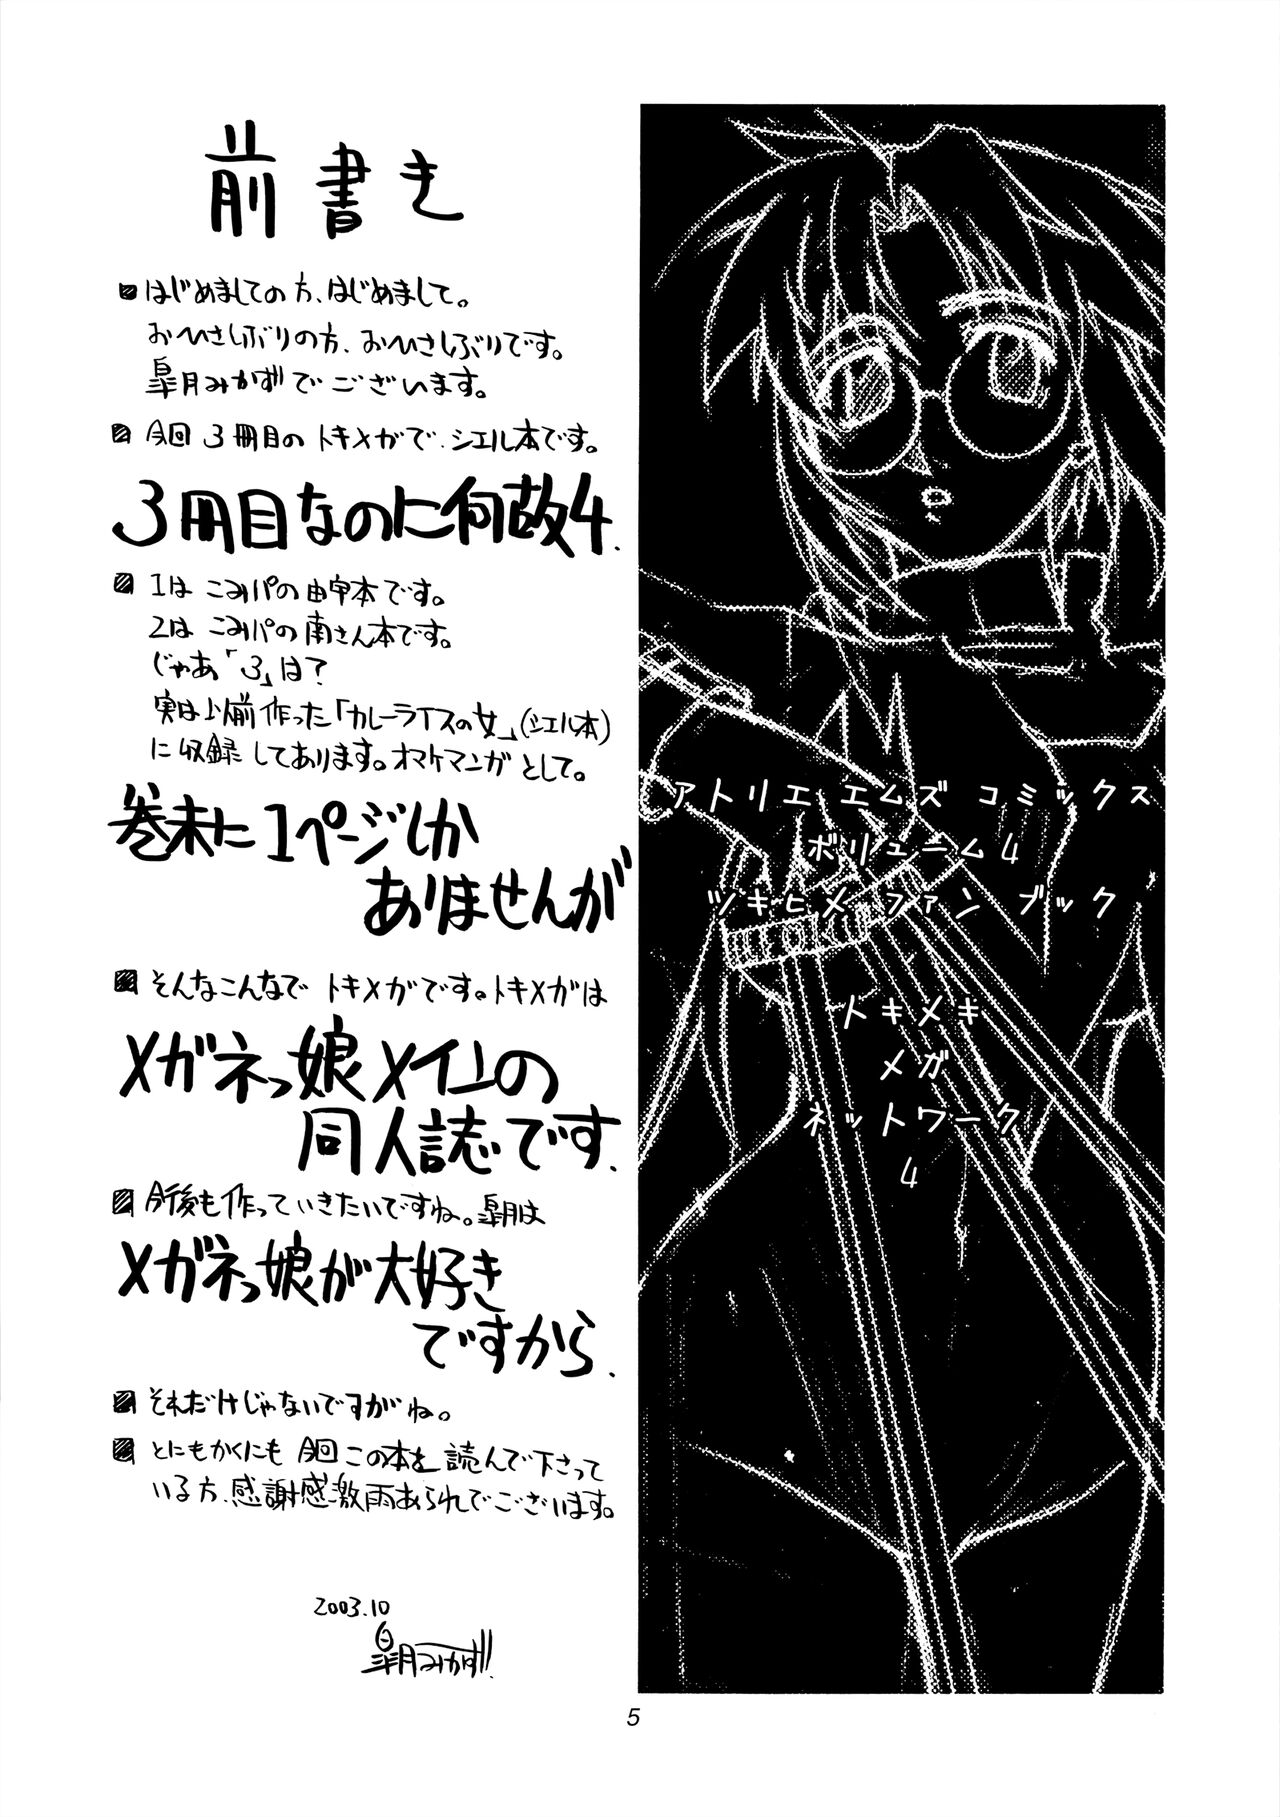 前書き
はじめましての方、はじめまして。
おひさしぶりの方、おひさしぶりです。
皐月みかずでございます。
今回 3冊目のトキメガで、シエル本です。
3冊目なのに何故4.
1は こみパの由宇本です。
2は こみパの南さん本です。
じゃあ「3」は?
実は以前作った「カレーライスの女」(シエル本)
に収録してあります。オマケマンガとして。
巻末に1ページしか
ありませんが
そんなこんなで トキメガです。トキメガは
メガネっ娘メインの
同人誌です.
今後も作っていきたいですね。皐月は
メガネっ娘が大好き
ですから.
それだけじゃないですがね。
とにもかくにも 今回この本を読んで下さって
いる方、感謝感激雨あられでございます。
2003.10
皐月みかず!
アトリエ エムズ コミックス
ボリューム4
ツキヒメ ファン ブック
トキメキ
メガ
ネットワーク
4
5